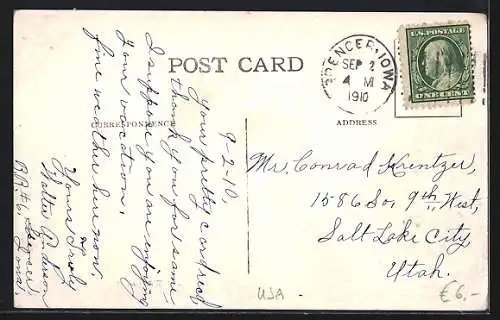 POST CARD
CORRESPONDENCE
ADDRESS
SPENCER, IOWA
SEP 2
4 M
1910
U.S. POSTAGE
ONE CENT
9-2-10.
Your pretty card rec'd
thank you for same.
I suppose you are enjoying
your vacation.
fine weather here now.
Yours Truly
Walter Anderson
Spencer,
Iowa.
Mr. Conrad Krentzer,
1586 So, 9th West,
Salt Lake City,
Utah.
USA-
€6,-